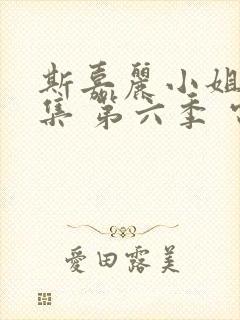 斯嘉麗小姐
集 第六季
愛田露美